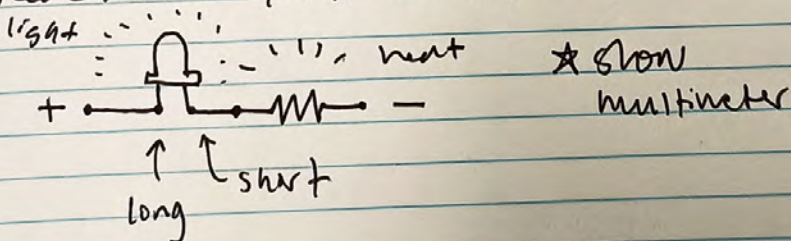 light
heat
+
−
☆ show
multimeter
short
long